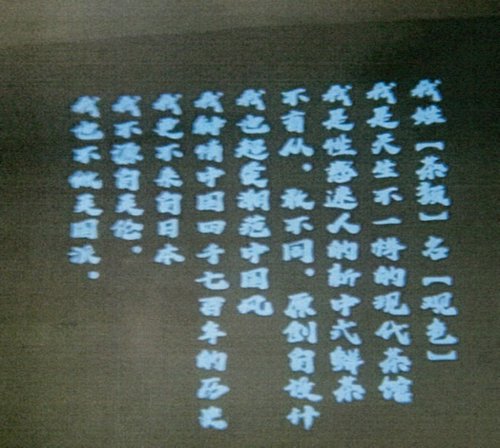 我姓【茶颜】名【观色】
我是天生不一样的现代茶馆
我是性感迷人的新中式鲜茶
不盲从。敢不同。原创自设计
我也超爱范中国风
我钟情中国四千七百年的历史
我不来自日本
我不源自英伦。
我也不做美国派。